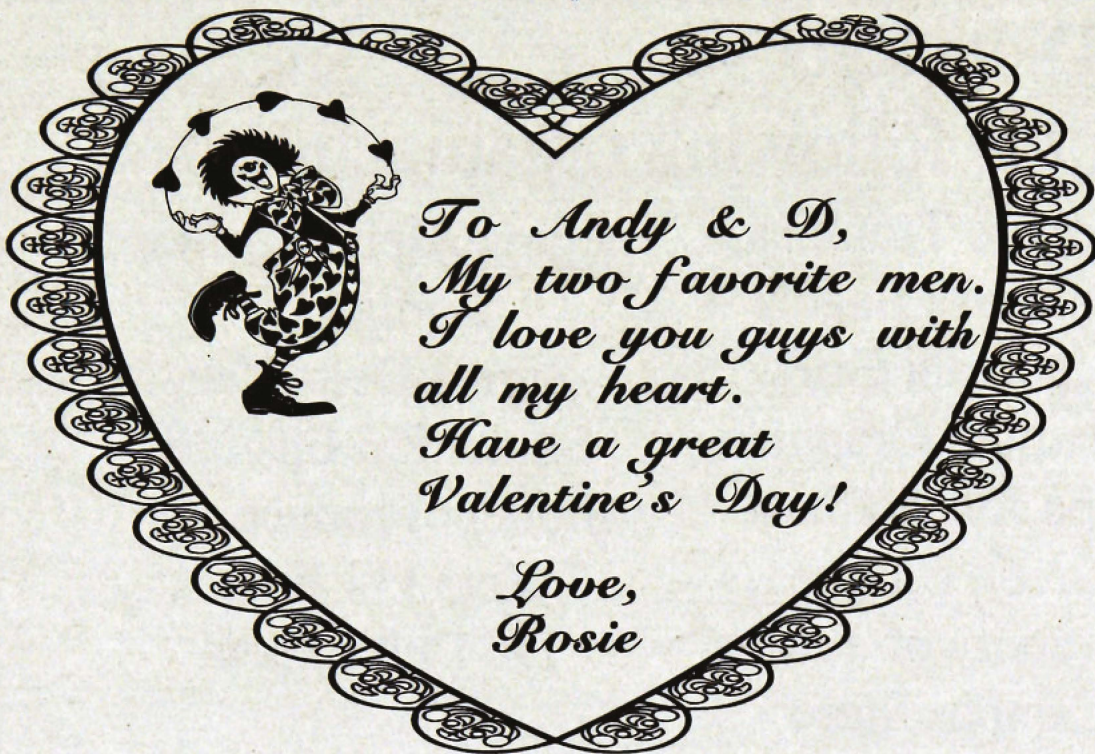 To Andy & D,
My two favorite men.
I love you guys with
all my heart.
Have a great
Valentine's Day!
Love,
Rosie